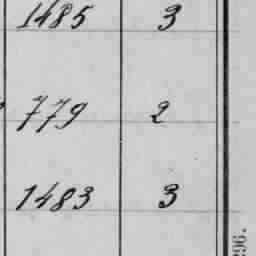 1485 3
779 2
1483 3
296.